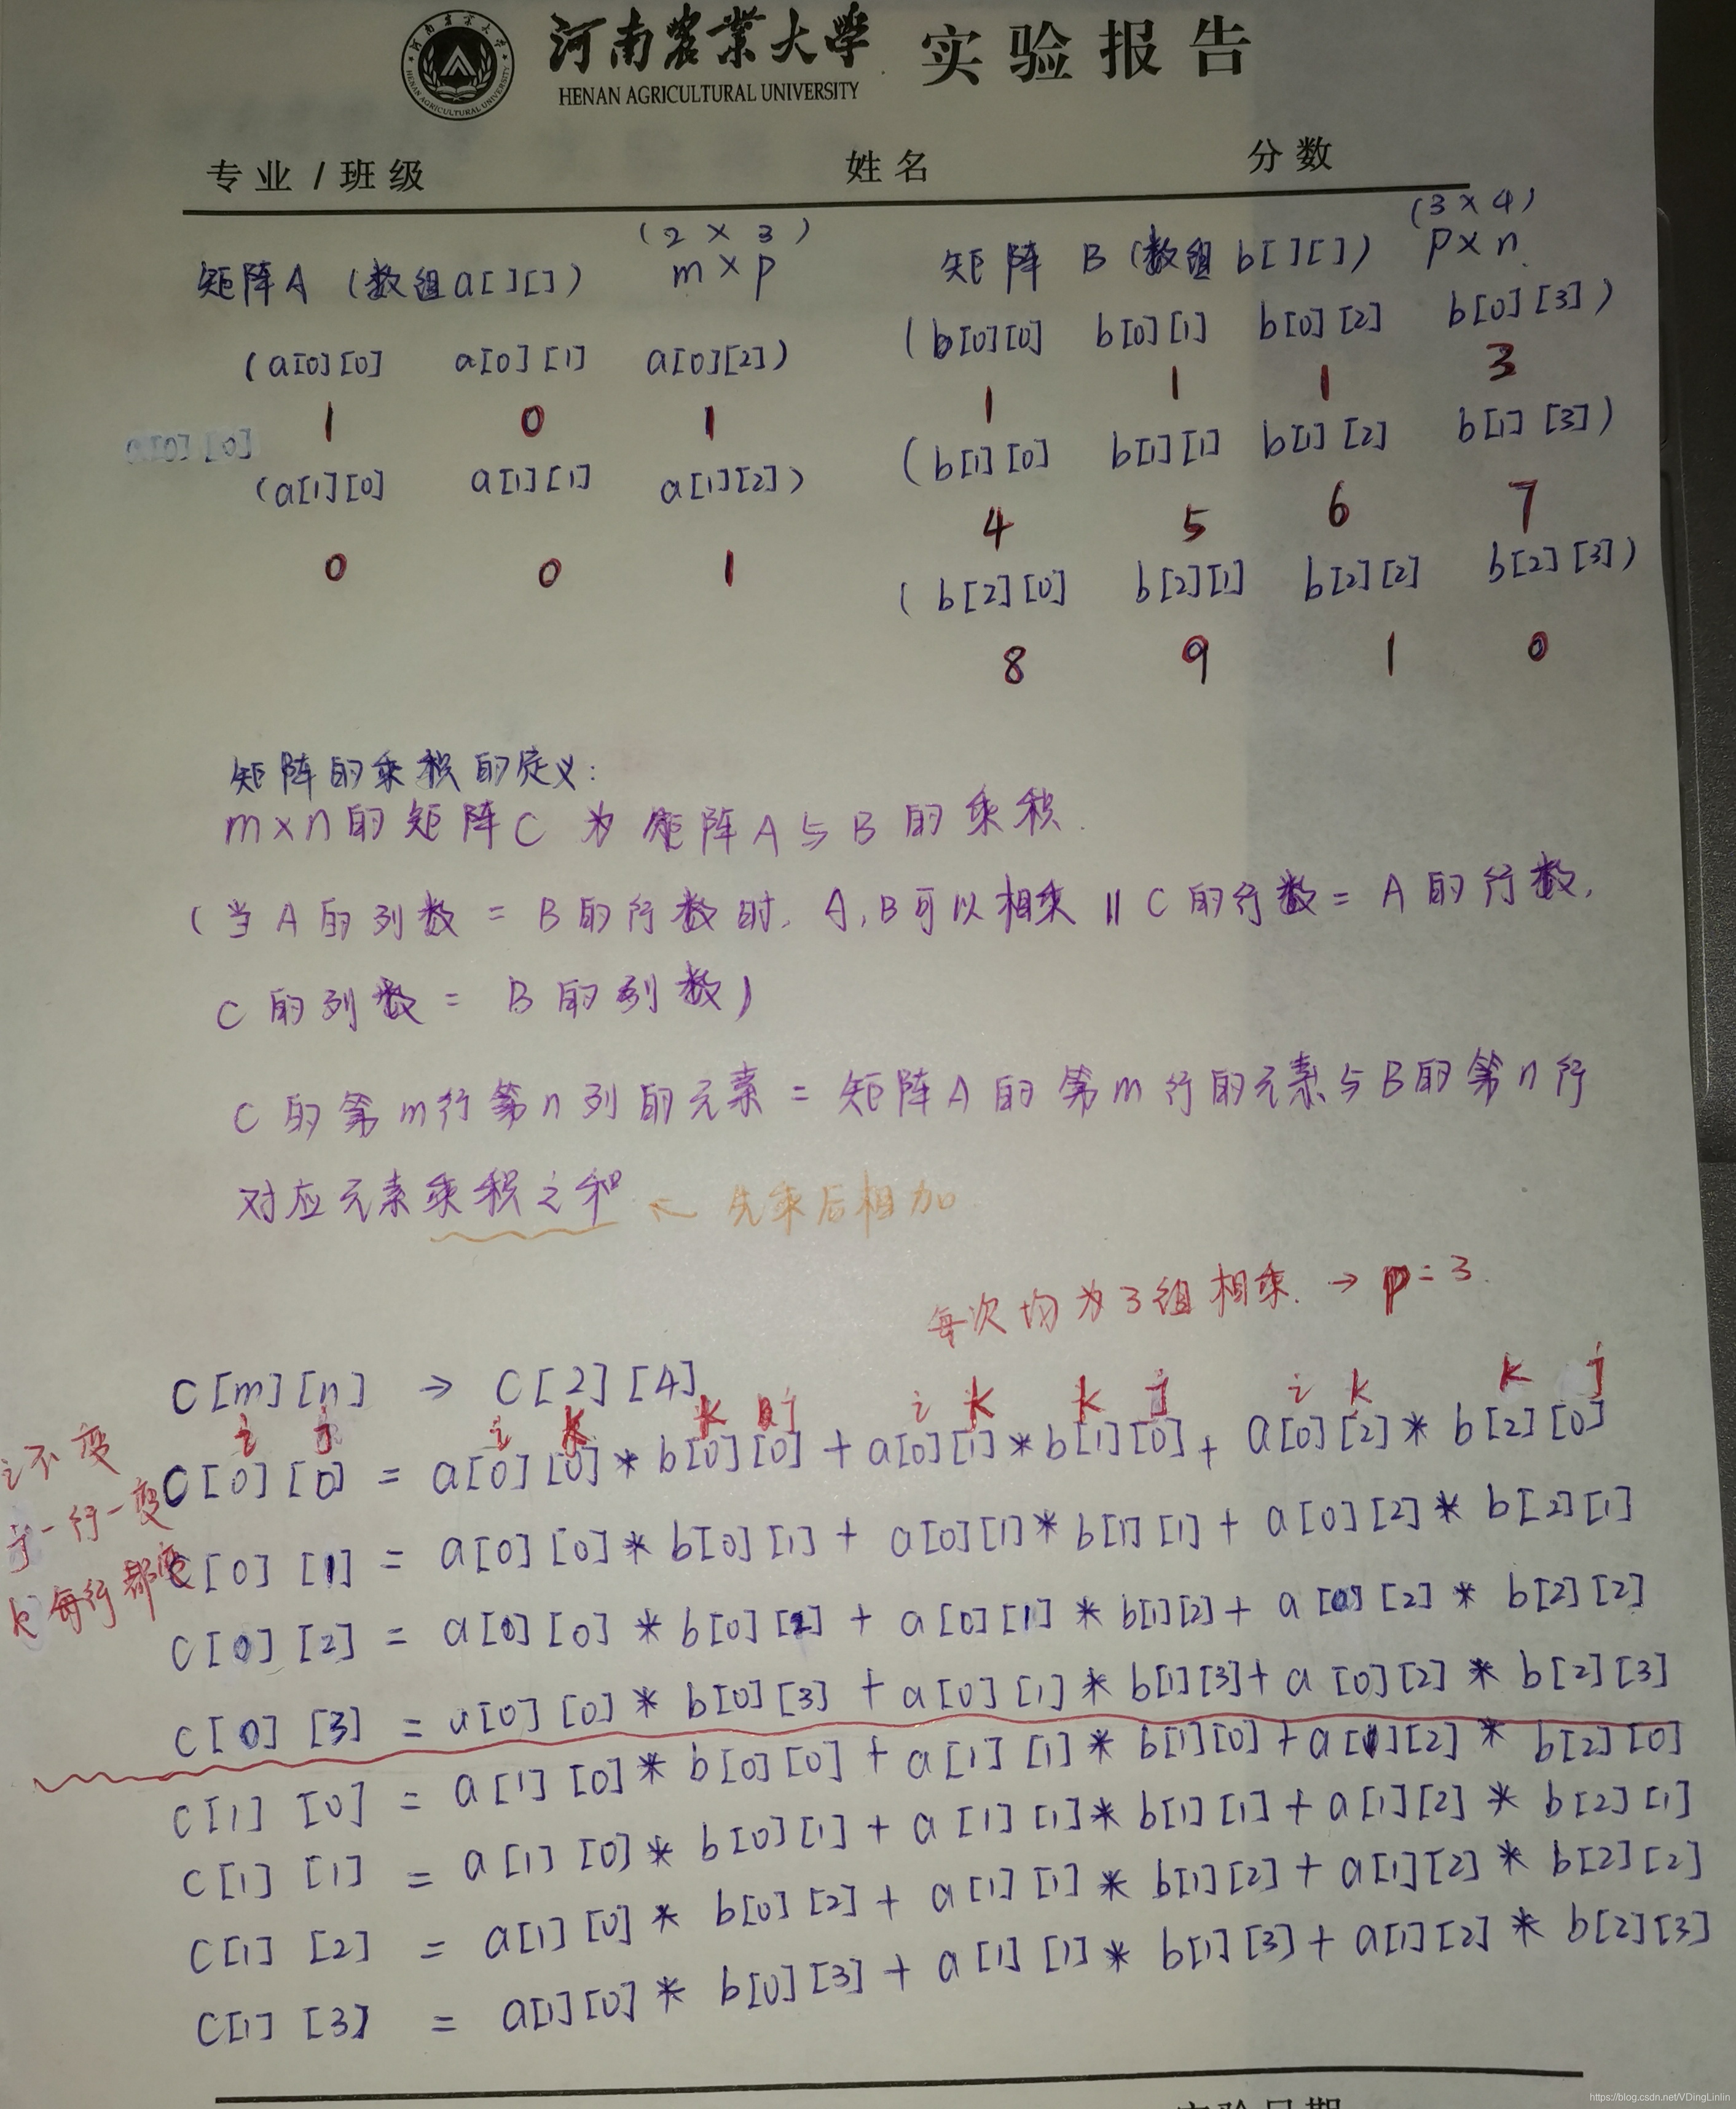 河南农业大学 实验报告
HENAN AGRICULTURAL UNIVERSITY
专业/班级 姓名 分数
(2 × 3) (3 × 4)
矩阵A (数组a[][]) m×p 矩阵 B (数组b[][]) p×n
(a[0][0] a[0][1] a[0][2]) (b[0][0] b[0][1] b[0][2] b[0][3])
1 0 1 1 1 1 3
a[0][0]
(a[1][0] a[1][1] a[1][2]) (b[1][0] b[1][1] b[1][2] b[1][3])
0 0 1 4 5 6 7
(b[2][0] b[2][1] b[2][2] b[2][3])
8 9 1 0
矩阵的乘积的定义:
m×n的矩阵C 为 矩阵A与B的乘积.
(当A的列数 = B的行数时, A,B可以相乘 || C的行数 = A的行数,
C的列数 = B的列数)
C的第m行第n列的元素 = 矩阵A的第m行的元素与B的第n行
对应元素乘积之和 ← 先乘后相加
每次均为3组相乘. → p=3.
C[m][n] → C[2][4]
i j i k k j i k k j i k k j
i不变
j一行一变
k每行都变
C[0][0] = a[0][0]*b[0][0] + a[0][1]*b[1][0] + a[0][2]*b[2][0]
C[0][1] = a[0][0]*b[0][1] + a[0][1]*b[1][1] + a[0][2]*b[2][1]
C[0][2] = a[0][0]*b[0][2] + a[0][1]*b[1][2] + a[0][2]*b[2][2]
C[0][3] = a[0][0]*b[0][3] + a[0][1]*b[1][3] + a[0][2]*b[2][3]
C[1][0] = a[1][0]*b[0][0] + a[1][1]*b[1][0] + a[1][2]*b[2][0]
C[1][1] = a[1][0]*b[0][1] + a[1][1]*b[1][1] + a[1][2]*b[2][1]
C[1][2] = a[1][0]*b[0][2] + a[1][1]*b[1][2] + a[1][2]*b[2][2]
C[1][3] = a[1][0]*b[0][3] + a[1][1]*b[1][3] + a[1][2]*b[2][3]
https://blog.csdn.net/VDingLinlin